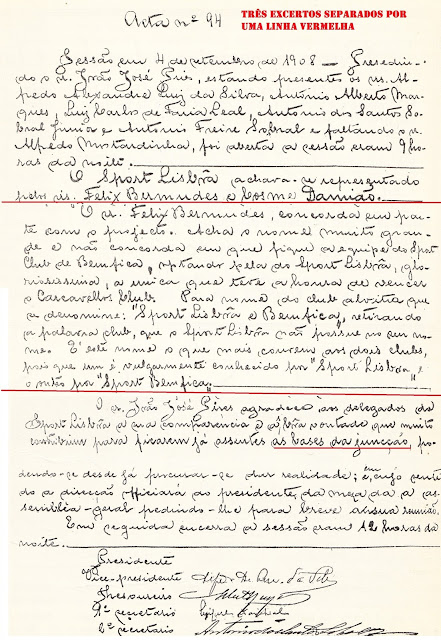 Acta nº 94
TRÊS EXCERTOS SEPARADOS POR
UMA LINHA VERMELHA
Sessão em 4 de setembro de 1908 — Presedin-
do o sr. João José Pires, estando presentes os srs. Al-
fredo Alexandre Luiz da Silva, António Alberto Mar-
ques, Luiz Carlos de Faria Leal, Antonio dos Santos So-
bral Junior e António Freire Sobral e faltando o sr.
Alfredo Mortandinha, foi aberta a cessão eram 9 ho-
ras da noite.
O Sport Lisbôa achava-se representado
pelos srs. Felix Bermudes e Cosme Damião.
O sr. Felix Bermudes, concorda em par-
te com o projecto. Acha o nome muito gran-
de e não concorda em que fique a equipe do Sport
Club de Bemfica, optando pela do Sport Lisbôa, glo-
riosissima, a unica que teve a honra de vencer
o Carcavellos Club. Para nome do club alvitra que
a denomine: "Sport Lisbôa e Bemfica", retirando
a palavra club, que o Sport Lisbôa não possue no seu no-
me. E' este nome o que mais convem aos dois clubs,
pois que um é vulgarmente conhecido por "Sport Lisboa" e
o outro por "Sport Bemfica".
O sr. João José Pires agradece aos delegados do
Sport Lisbôa a sua comparencia e a bôa vontade que muito
contribuiu para ficarem já assentes as bases da juncção, po-
dendo-se desde já procurar-se dar realidade; em cujo senti-
do a direcção officiará ao presidente da meza da as-
sembléa-geral pedindo-lhe para breve a sua reunião.
Em seguida encerra a sessão eram 12 horas da
noite.
Presidente
Vice-presidente
Thesoureiro
1º secretario
2º secretario